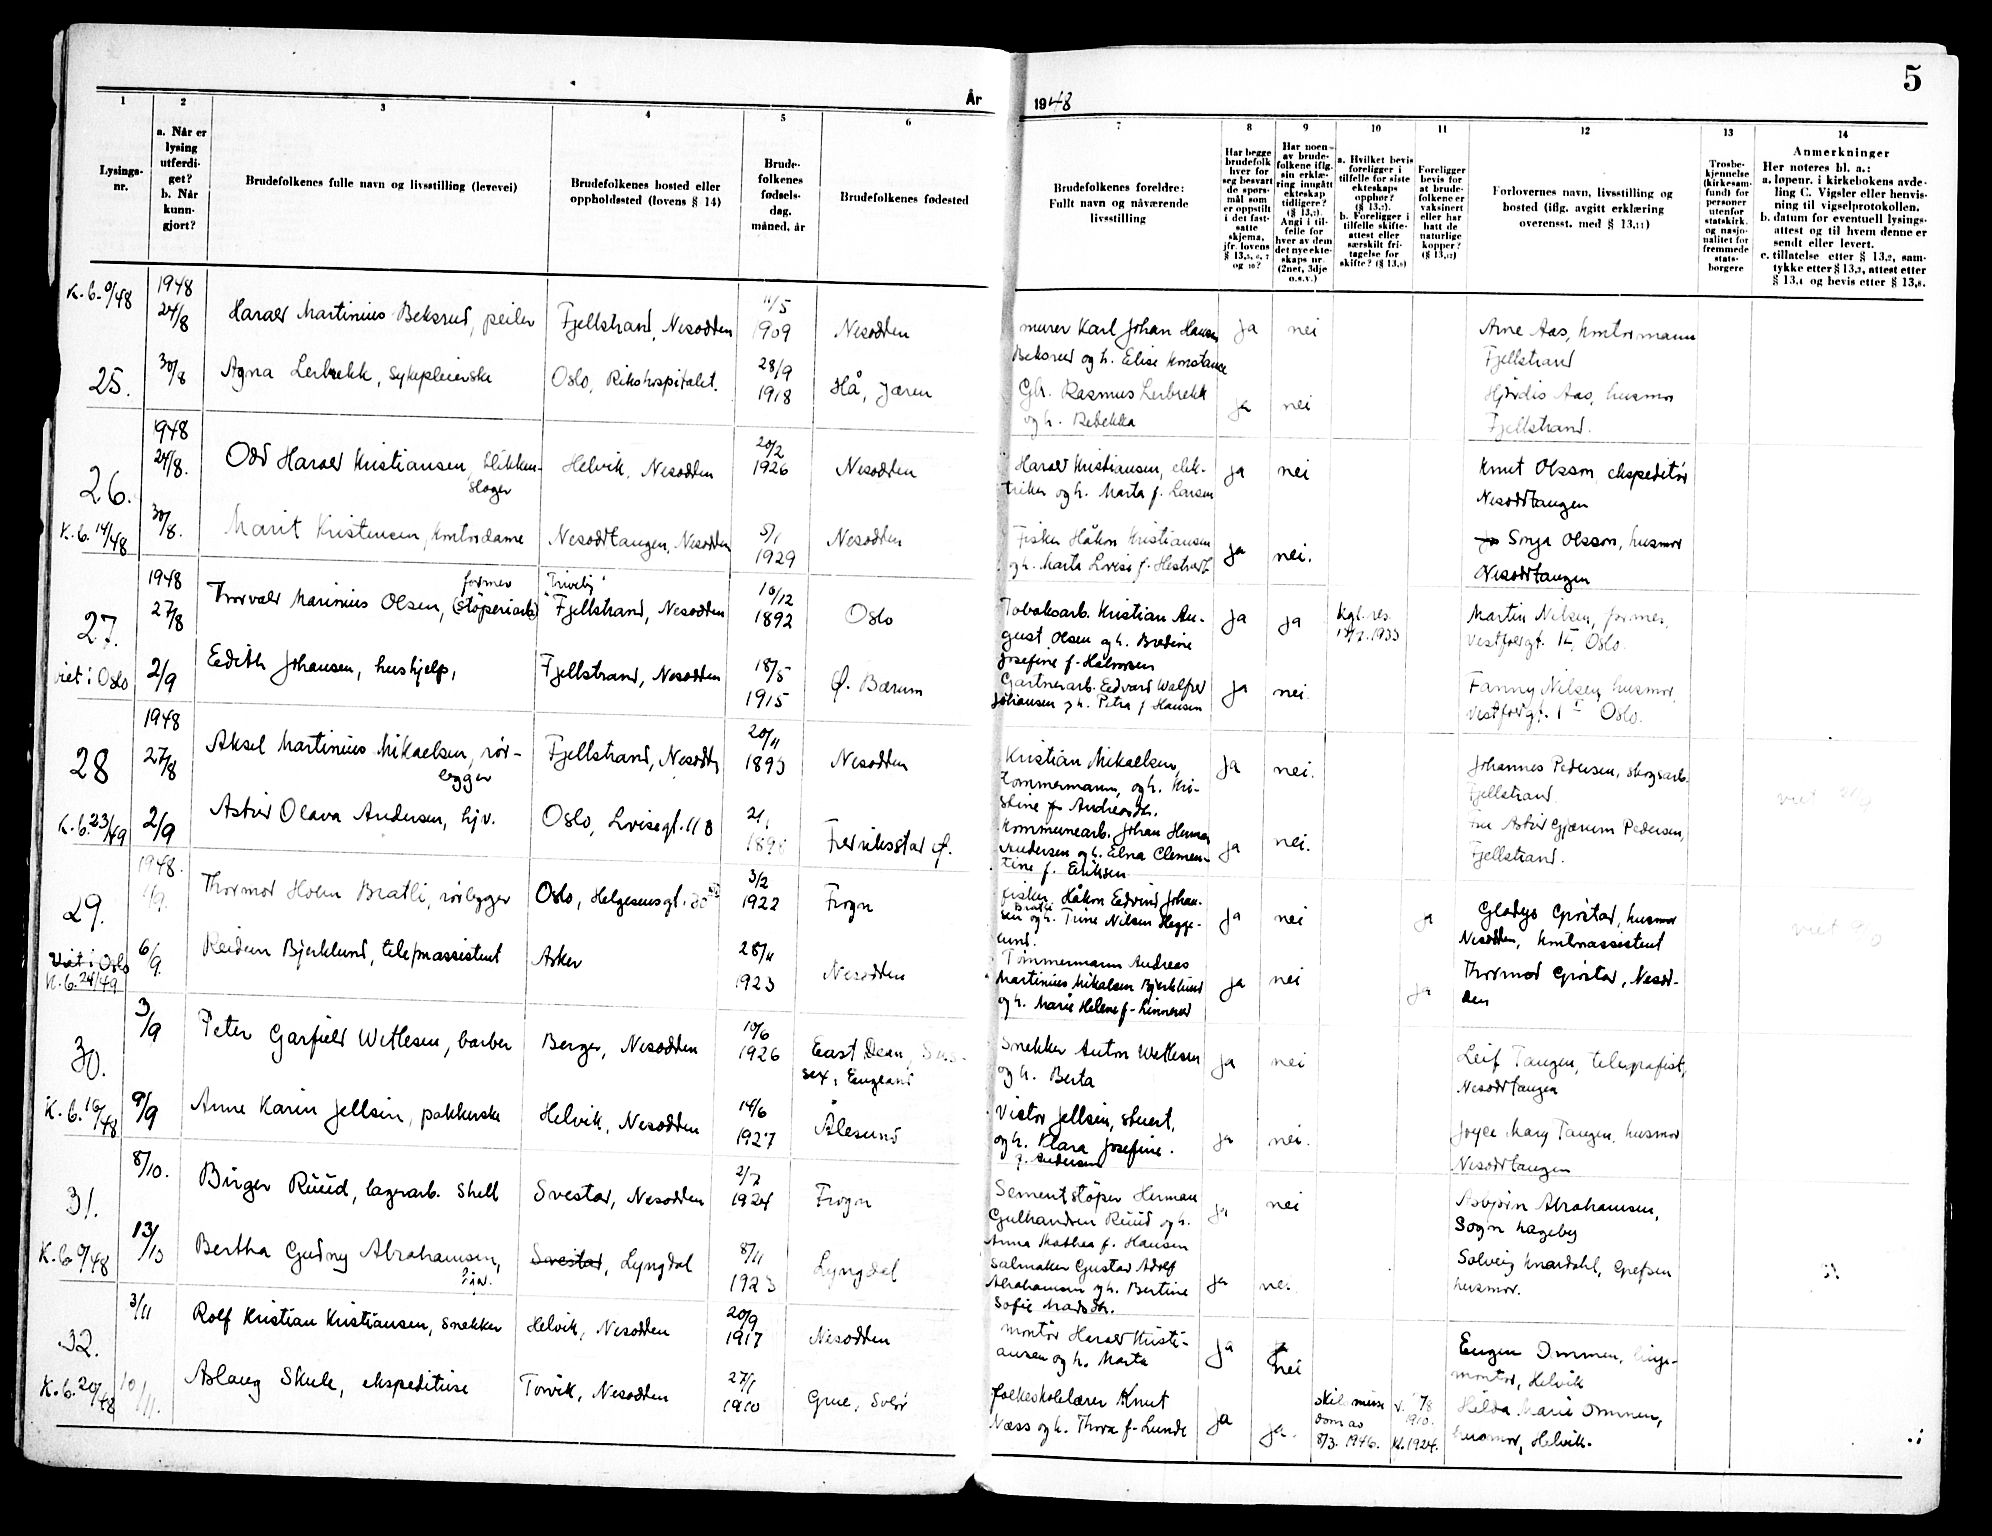 År
1948
5
1
2
3
4
5
6
7
8
9
10
11
12
13
14
Lysings-
nr.
a. Når er
lysing
utferdi-
get?
b. Når
kunn-
gjort?
Brudefolkenes fulle navn og livsstilling (levevei)
Brudefolkenes bosted eller
oppholdssted (lovens § 14)
Brude-
folkenes
fødsels-
dag,
måned, år
Brudefolkenes fødested
Brudefolkenes foreldre:
Fullt navn og nåværende
livsstilling
Har begge
brudefolk
hver for
seg besvart
de spørs-
mål som
er oppstilt
i det fast-
satte
skjema,
jfr. lovens
Har noen
av brude-
folkene iflg.
sin erklæ-
ring inngått
ekteskap
tidligere?
Angi i til-
felle for
hver av dem
det nye ekte-
skaps nr.
(2net, 3dje
o.s.v.)
a. Hvilket bevis
foreligger i
tilfelle for siste
ekteskaps
opphør?
b. Foreligger i
tilfelle skifte-
attest eller
særskilt fri-
tagelse for
skifte?
Foreligger
bevis for
at brude-
folkene er
vaksinert
eller har
hatt de
naturlige
kopper?
Forlovernes navn, livsstilling og
bosted (iflg. avgitt erklæring
overensst. med § 13,11)
Trosbe-
kjennelse
(kirkesam-
fund) for
personer
utenfor
statskirk.
og nasjo-
nalitet for
fremmede
stats-
borgere
Anmerkninger
Her noteres bl. a.:
a. løpenr. i kirkebokens avde-
ling C. Vigsler eller henvis-
ning til vigselprotokollen.
b. datum for eventuell lysings-
attest og til hvem denne er
sendt eller levert.
c. tillatelse etter § 13,2, sam-
tykke etter § 13,3, attest etter
§ 13,4 og bevis etter § 13,8.
1948
24/8
Harald Martinius Beksrud, peiler
Fjellstrand, Nesodden
11/5
1909
Nesodden
murer Karl Johan Hansen
Beksrud og h. Elise Konstance
ja
nei
Arne Aas, kontormann
Fjellstrand
25.
30/8
Agna Lerbrekk, sykepleierske
Oslo, Rikshospitalet.
28/9
1918
Hå, Jæren
Gbr. Rasmus Lerbrekk
og h. Rebekka
ja
nei
Hjørdis Aas, husmor
Fjellstrand.
26.
1948
24/8.
Odd Harald Kristiansen, blikken-
slager
Helvik, Nesodden
20/2
1926
Nesodden
Harald Kristiansen, elek-
triker og h. Marta f. Larsen
ja
nei
Knut Olsson, ekspeditør
Nesoddtangen
K.b. 14/48
30/8.
Marit Kristensen, kontordame
Nesoddtangen, Nesodden
5/1
1929
Nesodden
Fisker Håkon Kristiansen
og h. Marta Lovise f.
ja
nei.
Sonja Olsson, husmor
Nesoddtangen
27.
1948
27/8
Thorvald Marinius Olsen, former (støperiarb)
Fjellstrand, Nesodden
10/12
1892
Oslo
Tobaksarb. Kristian Au-
gust Olsen og h. Bredine
Josefine f. Halvorsen
ja
ja
Kgl. res.
1933
Martin Nilsen, former,
Oslo.
viet i Oslo
2/9
Edith Johansen, hushjelp,
Fjellstrand, Nesodden
18/5
1915
Ø. Bærum
Gartnerarb. Edvard Walfred
Johansen og h. Petra f. Hansen
ja
nei.
Fanny Nilsen, husmor,
Oslo.
28
1948
27/8
Aksel Martinius Mikaelsen, rør-
legger
Fjellstrand, Nesodden
20/11
1893
Nesodden
Kristian Mikaelsen,
tømmermann, og h. Kri-
stine f. Andreasdtr.
ja
nei.
Johannes Pedersen, skogsarb.
Fjellstrand
K.b. 23/49
2/9
Astrid Olava Andersen, hjv.
Oslo,
Fredrikstad Ø.
Kommunearb. Johan Herman
Andersen og h. Elna Clemen-
tine f. Eriksen
ja
nei.
fru Astrid Gjærum Pedersen,
Fjellstrand.
29.
1948.
Thormod Holm Bratli, rørlegger
Oslo, Helgesensgt.
3/2
1922
Frogn
fisker Håkon Edvind Johan-
sen Bratli og h. Trine Nilsen Hegge-
lund.
ja
nei
ja
Gladys Grøstad, husmor
Nesodden, kontorassistent
viet i Oslo
K.b. 24/49
6/9.
Reidun Bjerklund, telef.assistent
Asker
28/11
1923
Nesodden
Tømmermann Andreas
Martinius Mikalsen Bjerklund
og h. Marie Helene f. Linnerud
ja
nei
ja
Thormod Grøstad, Nesod-
den
30.
3/9
Peter Garfield Wetlesen, barber
Berger, Nesodden
10/6
1926
East Dean, Sus-
sex, England
Snekker Anton Wetlesen
og h. Berta
ja
nei
Leif Tangen, telegrafist,
Nesoddtangen
K.b. 16/48
9/9
Anne Karin Jellsin, pakkerske
Helvik, Nesodden
14/6
1927
Ålesund
Victor Jellsin, stuert,
og h. Klara Josefine.
f. Andersen
ja
nei.
Joyce Mary Tangen, husmor
Nesoddtangen
31.
8/10.
Birger Ruud, lagerarb. Shell
Svestad, Nesodden
1924
Frogn
Sementstøper Herman
Gulbrandsen Ruud og h.
Anna Mathea f. Hansen
ja
nei
Asbjørn Abrahamsen,
Sogn hageby
13/10
Bertha Gudny Abrahamsen,
hjv.
Svestad, Lyngdal
8/11
1923
Lyngdal
salmaker Gustav Adolf
Abrahamsen og h. Bertine
Sofie Madsdtr.
ja
nei
Solveig Knardahl, Grefsen
husmor.
32.
3/11
Rolf Kristian Kristiansen, snekker
Helvik, Nesodden
20/9
1917
Nesodden
montør Harald Kristi-
ansen og h. Marta
ja
nei
Eugen Ommen, linje-
montør, Helvik
K.b. 20/48
10/11.
Aslaug Skule, ekspeditrise
Torvik, Nesodden
27/1
1910
Grue, Solør
folkeskolelærer Knut
Næss og h. Thora f. Lunde
ja
ja.
skilsmisse
dom av
8/3. 1946.
v. 7/8
1910.
K. 1924.
Hilda Marie Ommen,
husmor, Helvik.